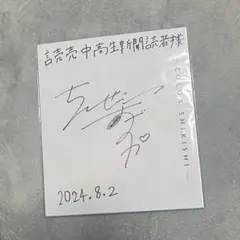 読売中高生新聞読者様
COLOR SHIKISHI
2024.8.2